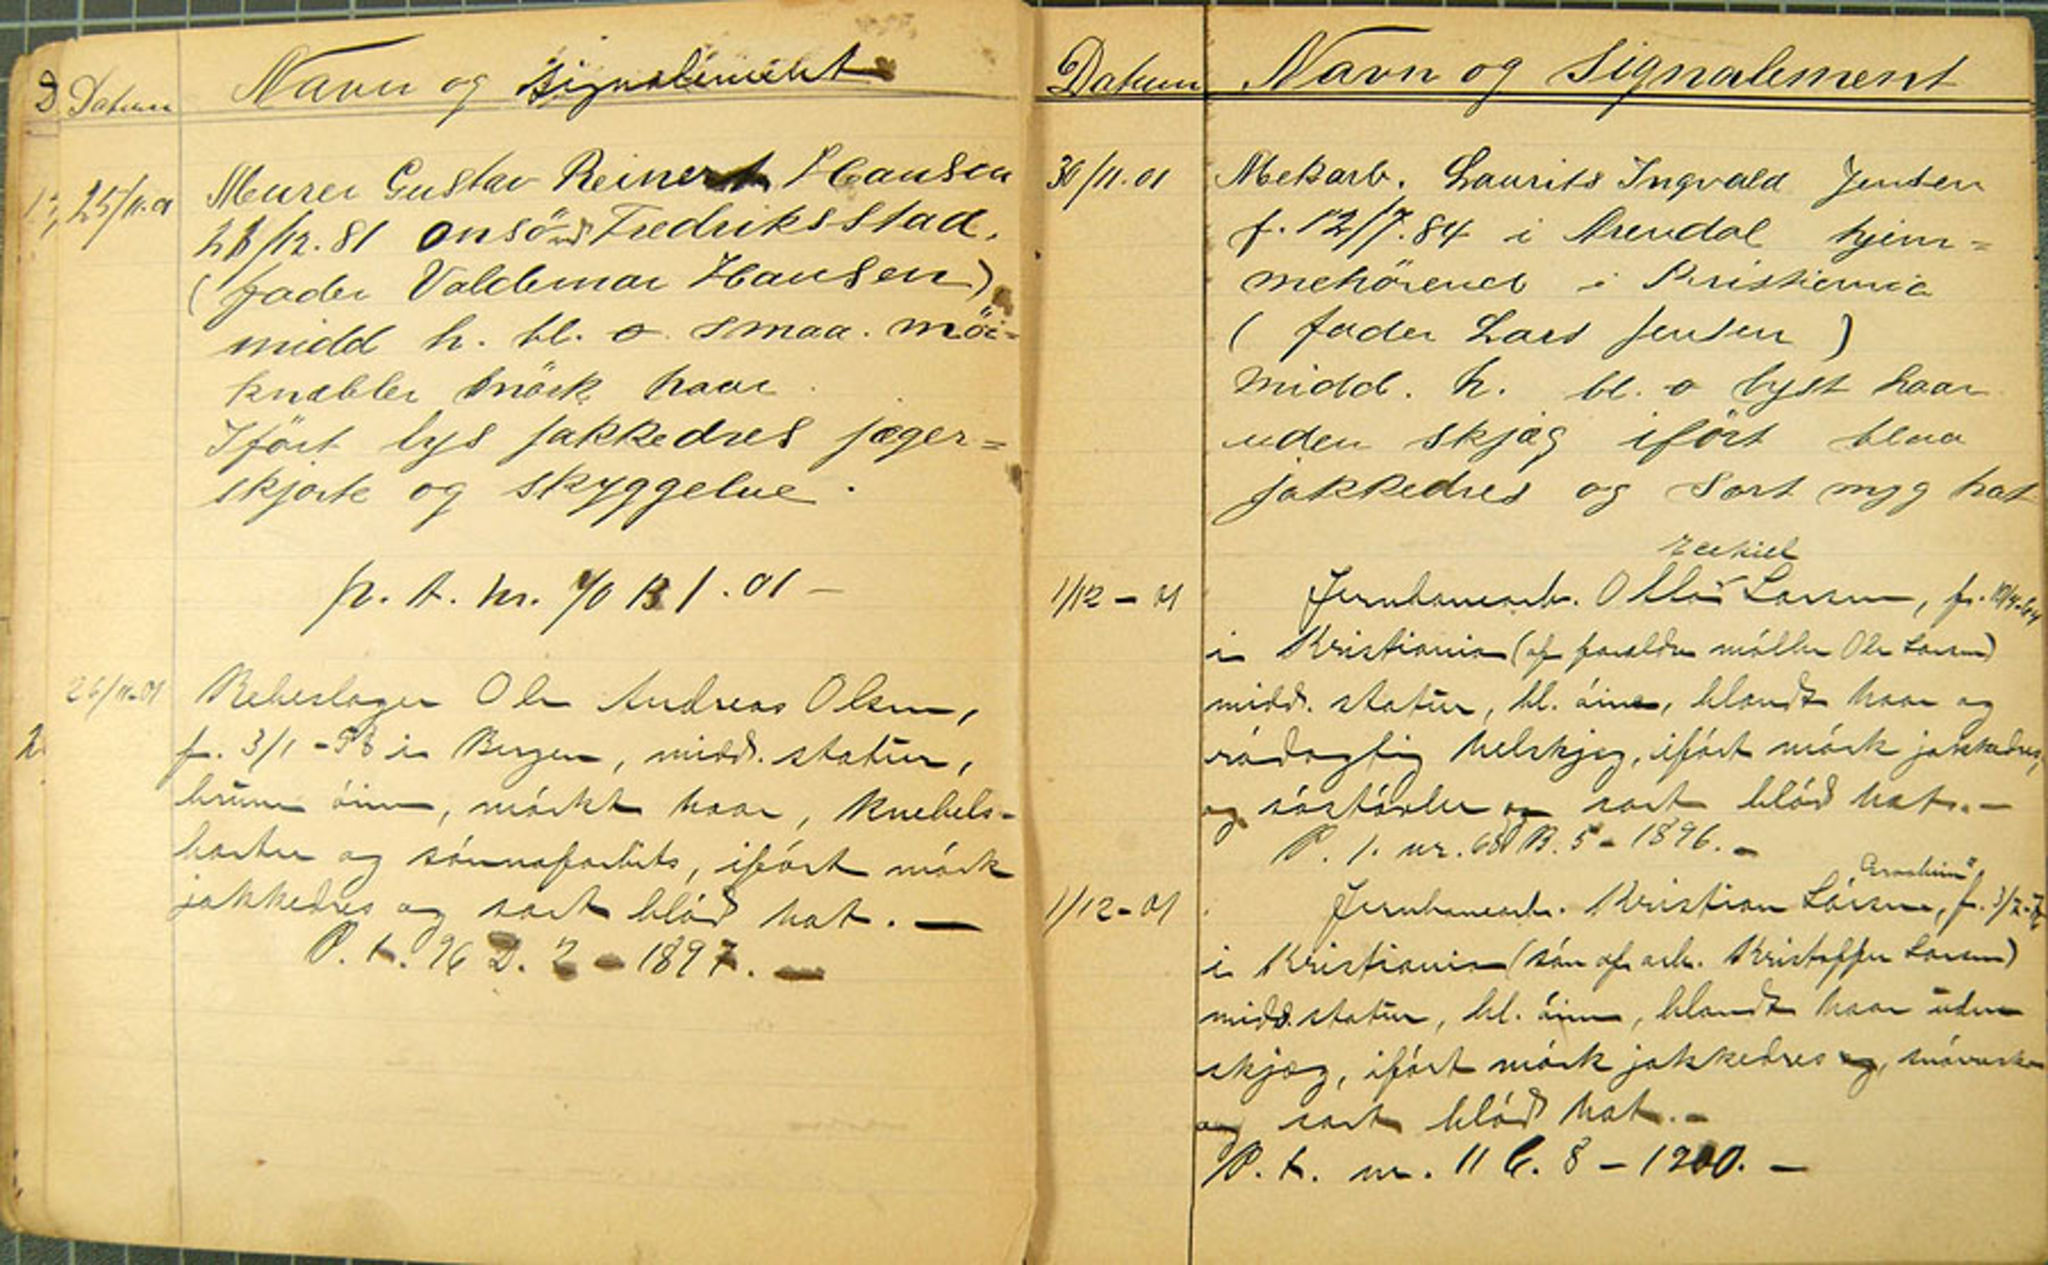 D Datum Navn og signalement
25/11.01 Murer Gustav Reinert Hansen
/12.81 Onsö Fredriksstad.
(fader Valdemar Hansen)
midd h. bl. ø. smaa. mör-
knæbler mörk haar.
Iført lys jakkedres jæger=
skjorte og skyggelue.
p. t. nr. 70 B 1.01 —
26/11-01 Rebeslager Ole Andreas Olsen,
2 f. 3/1-58 i Bergen, midd. statur,
brune öine, mörkt haar, knebels-
barter og, ifört mörk
jakkedres og sort blöd hat. —
P. t. 96 D. 2 - 1897. —
Datum Navn og Signalement
30/11.01 Mekarb. Laurits Ingvald Jensen
f. 12/7.84 i Arendal hjem=
mehörende i Kristiania
(fader Lars Jensen)
midd. h. bl. ø lyst haar
uden skjæg iført blaa
jakkedres og sort myg hat
1/12-01 Jernbanearb. Larsen, f.
i Kristiania (af forældre möller Ole Larsen)
midd. statur, bl. öine, blondt haar og
rödagtig helskjæg, ifört mörk jakkedres,
og sjöstövler og sort blöd hat. —
P. t. nr. 68 B. 5 - 1896. —
1/12-01 Jernbanearb. Kristian Larsen, f. 3/2-
i Kristiania (sön af arb. Kristoffer Larsen)
midd. statur, bl. öine, blondt haar uden
skjæg, ifört mörk jakkedres, snöresko
og sort blöd hat. —
P. t. nr. 11 C. 8 - 1900. —